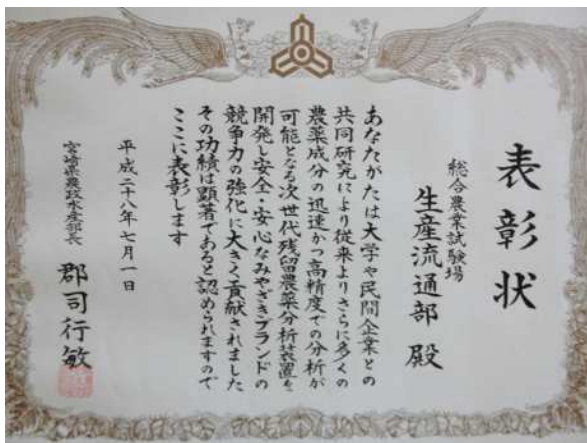 表彰状
総合農業試験場
生産流通部 殿
あなたがたは大学や民間企業との
共同研究により従来よりさらに多くの
農薬成分の迅速かつ高精度での分析が
可能となる次世代残留農薬分析装置を
開発し安全・安心なみやざきブランドの
競争力の強化に大きく貢献されました
その功績は顕著であると認められますので
ここに表彰します
平成二十八年七月一日
宮崎県農政水産部長 郡司行敏